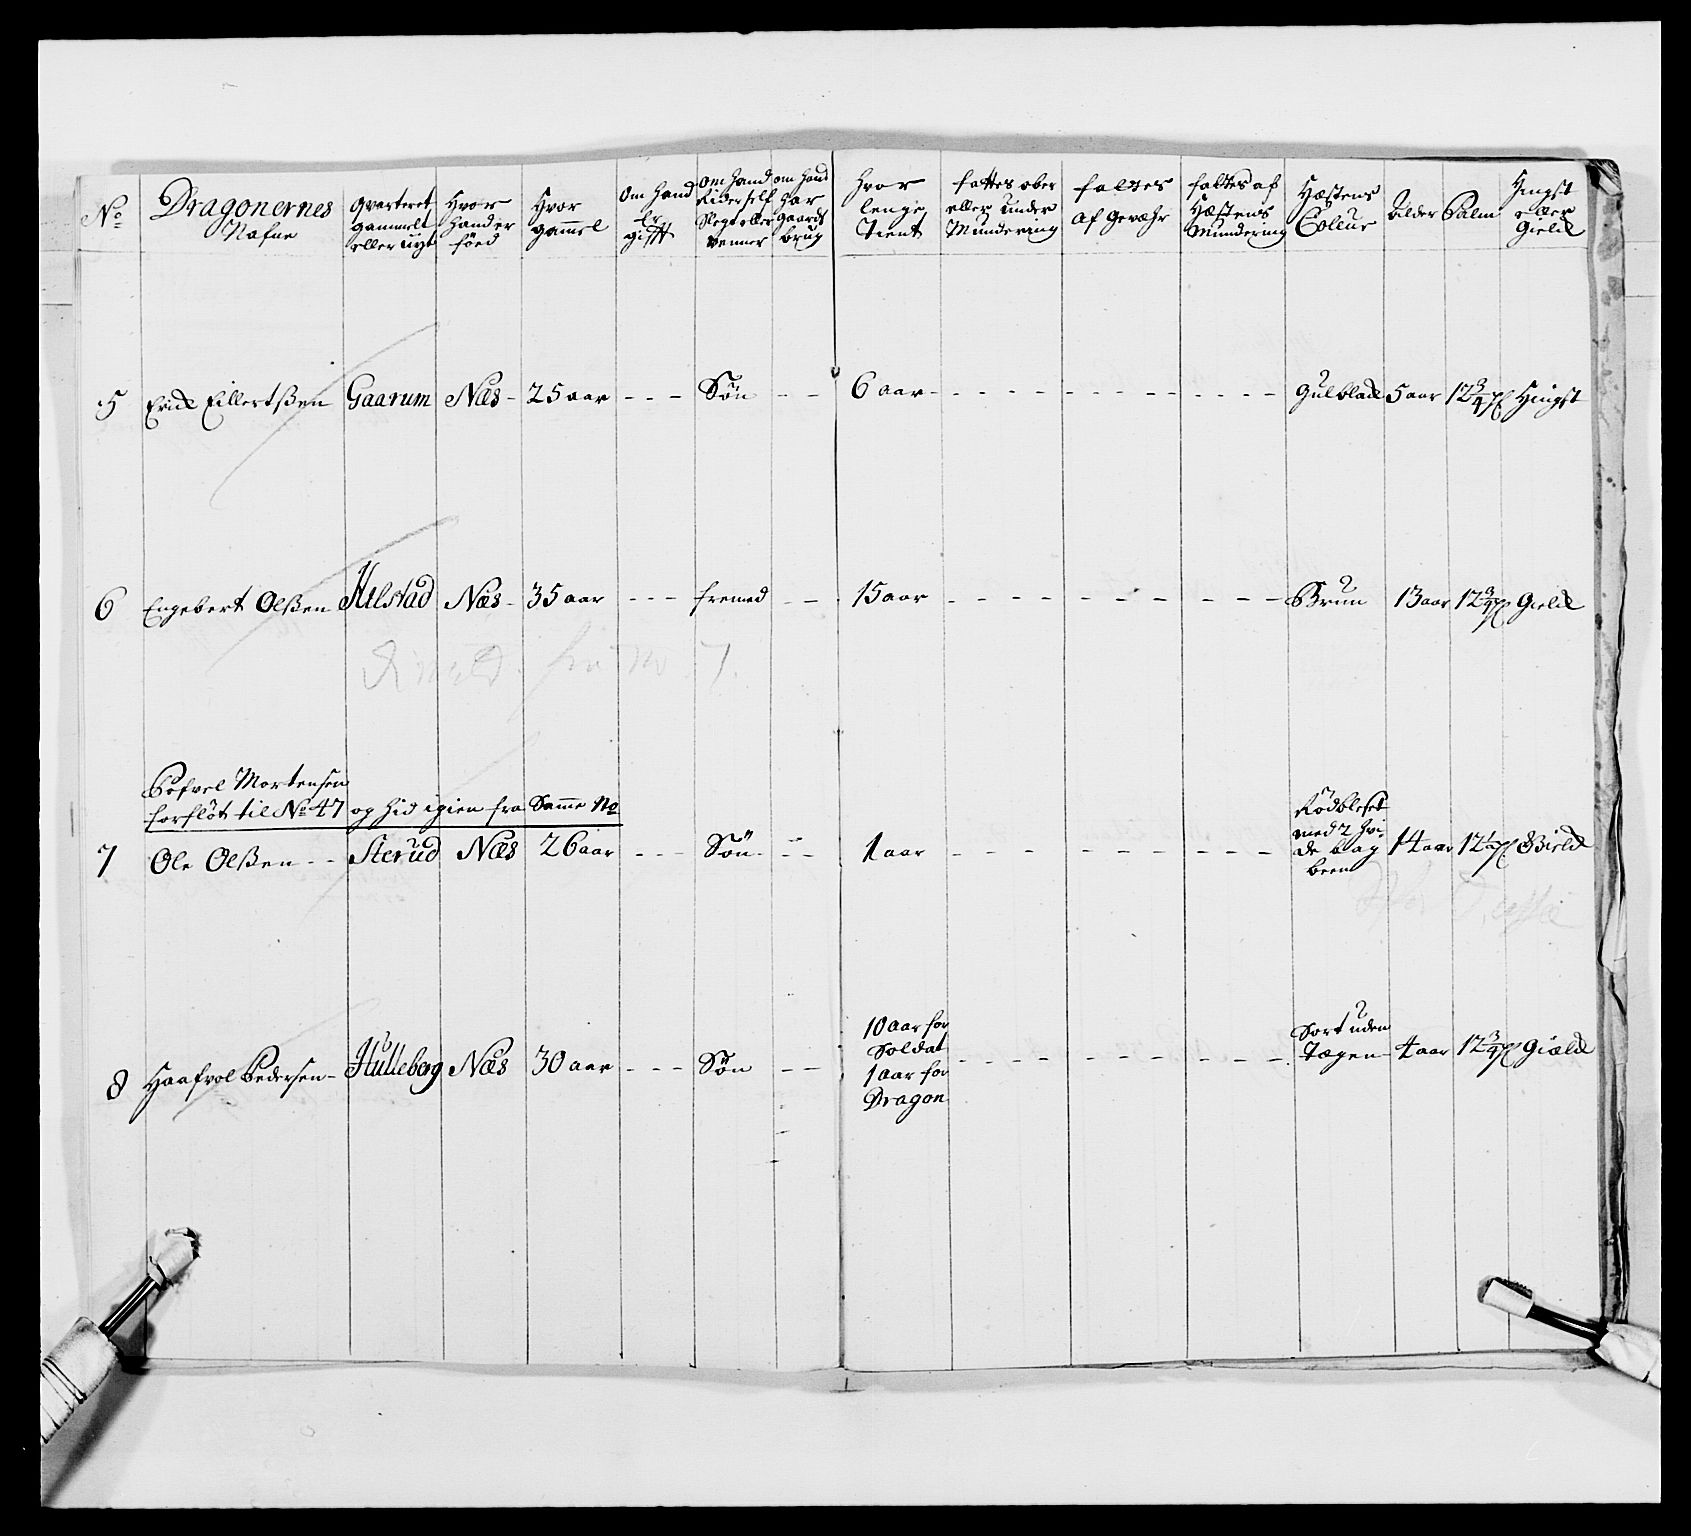 No
Dragonernes Nafne
Qvarteret gammelt eller nyt
Hvor hand er föed
Hvor gammel
Om hand Er gifft
om hand Eider self Slegt eller venner
om hand har gaards brug
hvor lenge tient
fattes ober eller under Mundering
fattes af gevæhr
fattes af Hæstens Mundering
Hæstens Collur
Alder
Palm
Hingst eller gield
5 Erik Eillertßen Gaarum Næs - 25 aar - - - Søn - - 6 aar - - - - - - - - - - - gulblak 5 aar 12 3/4 Hingst
6 Engebert Olßen Hilstad Næs - 35 aar - - - fremed - 15 aar - - - - - - - - - - Brun 13 aar 12 3/4 gield
Mortensen
forflöt til No 47 og hid igien fra Samme No
7 Ole Olßen - - Sterud Næs 26 aar - - - Søn - - - 1 aar - - - - - - - - - Rødbleset med 2 hvi de bag been 14 aar 12 1/2 Gield
8 Haafvol Pedersen - Hulleberg Næs 30 aar - - - Søn - - 10 aar for Soldat 1 aar for Dragon - - - - - - - - - Sort uden Tegen 4 aar 12 3/4 gield